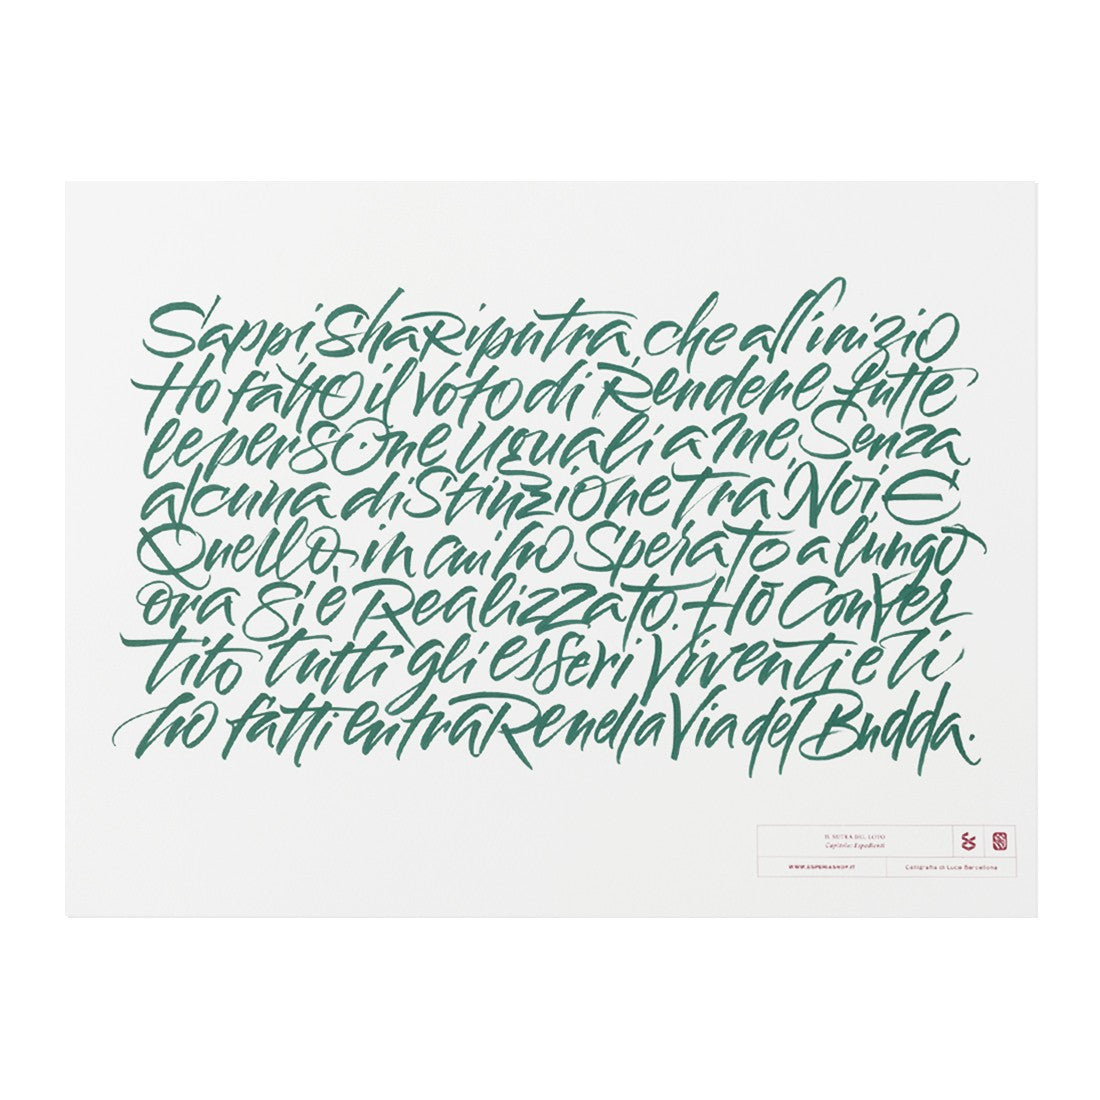 Sappi Shariputra, che all'inizio
Ho fatto il voto di Rendere tutte
le persone uguali a me, Senza
alcuna distinzione tra Noi. E
Quello, in cui ho Sperato a lungo
ora si è Realizzato. Ho Conver
tito tutti gli esseri viventi e li
ho fatti entrare nella Via del Budda.
IL SUTRA DEL LOTO
Capitolo: Espedienti
WWW.ESPERIASHOP.IT
Calligrafia di Luca Barcellona